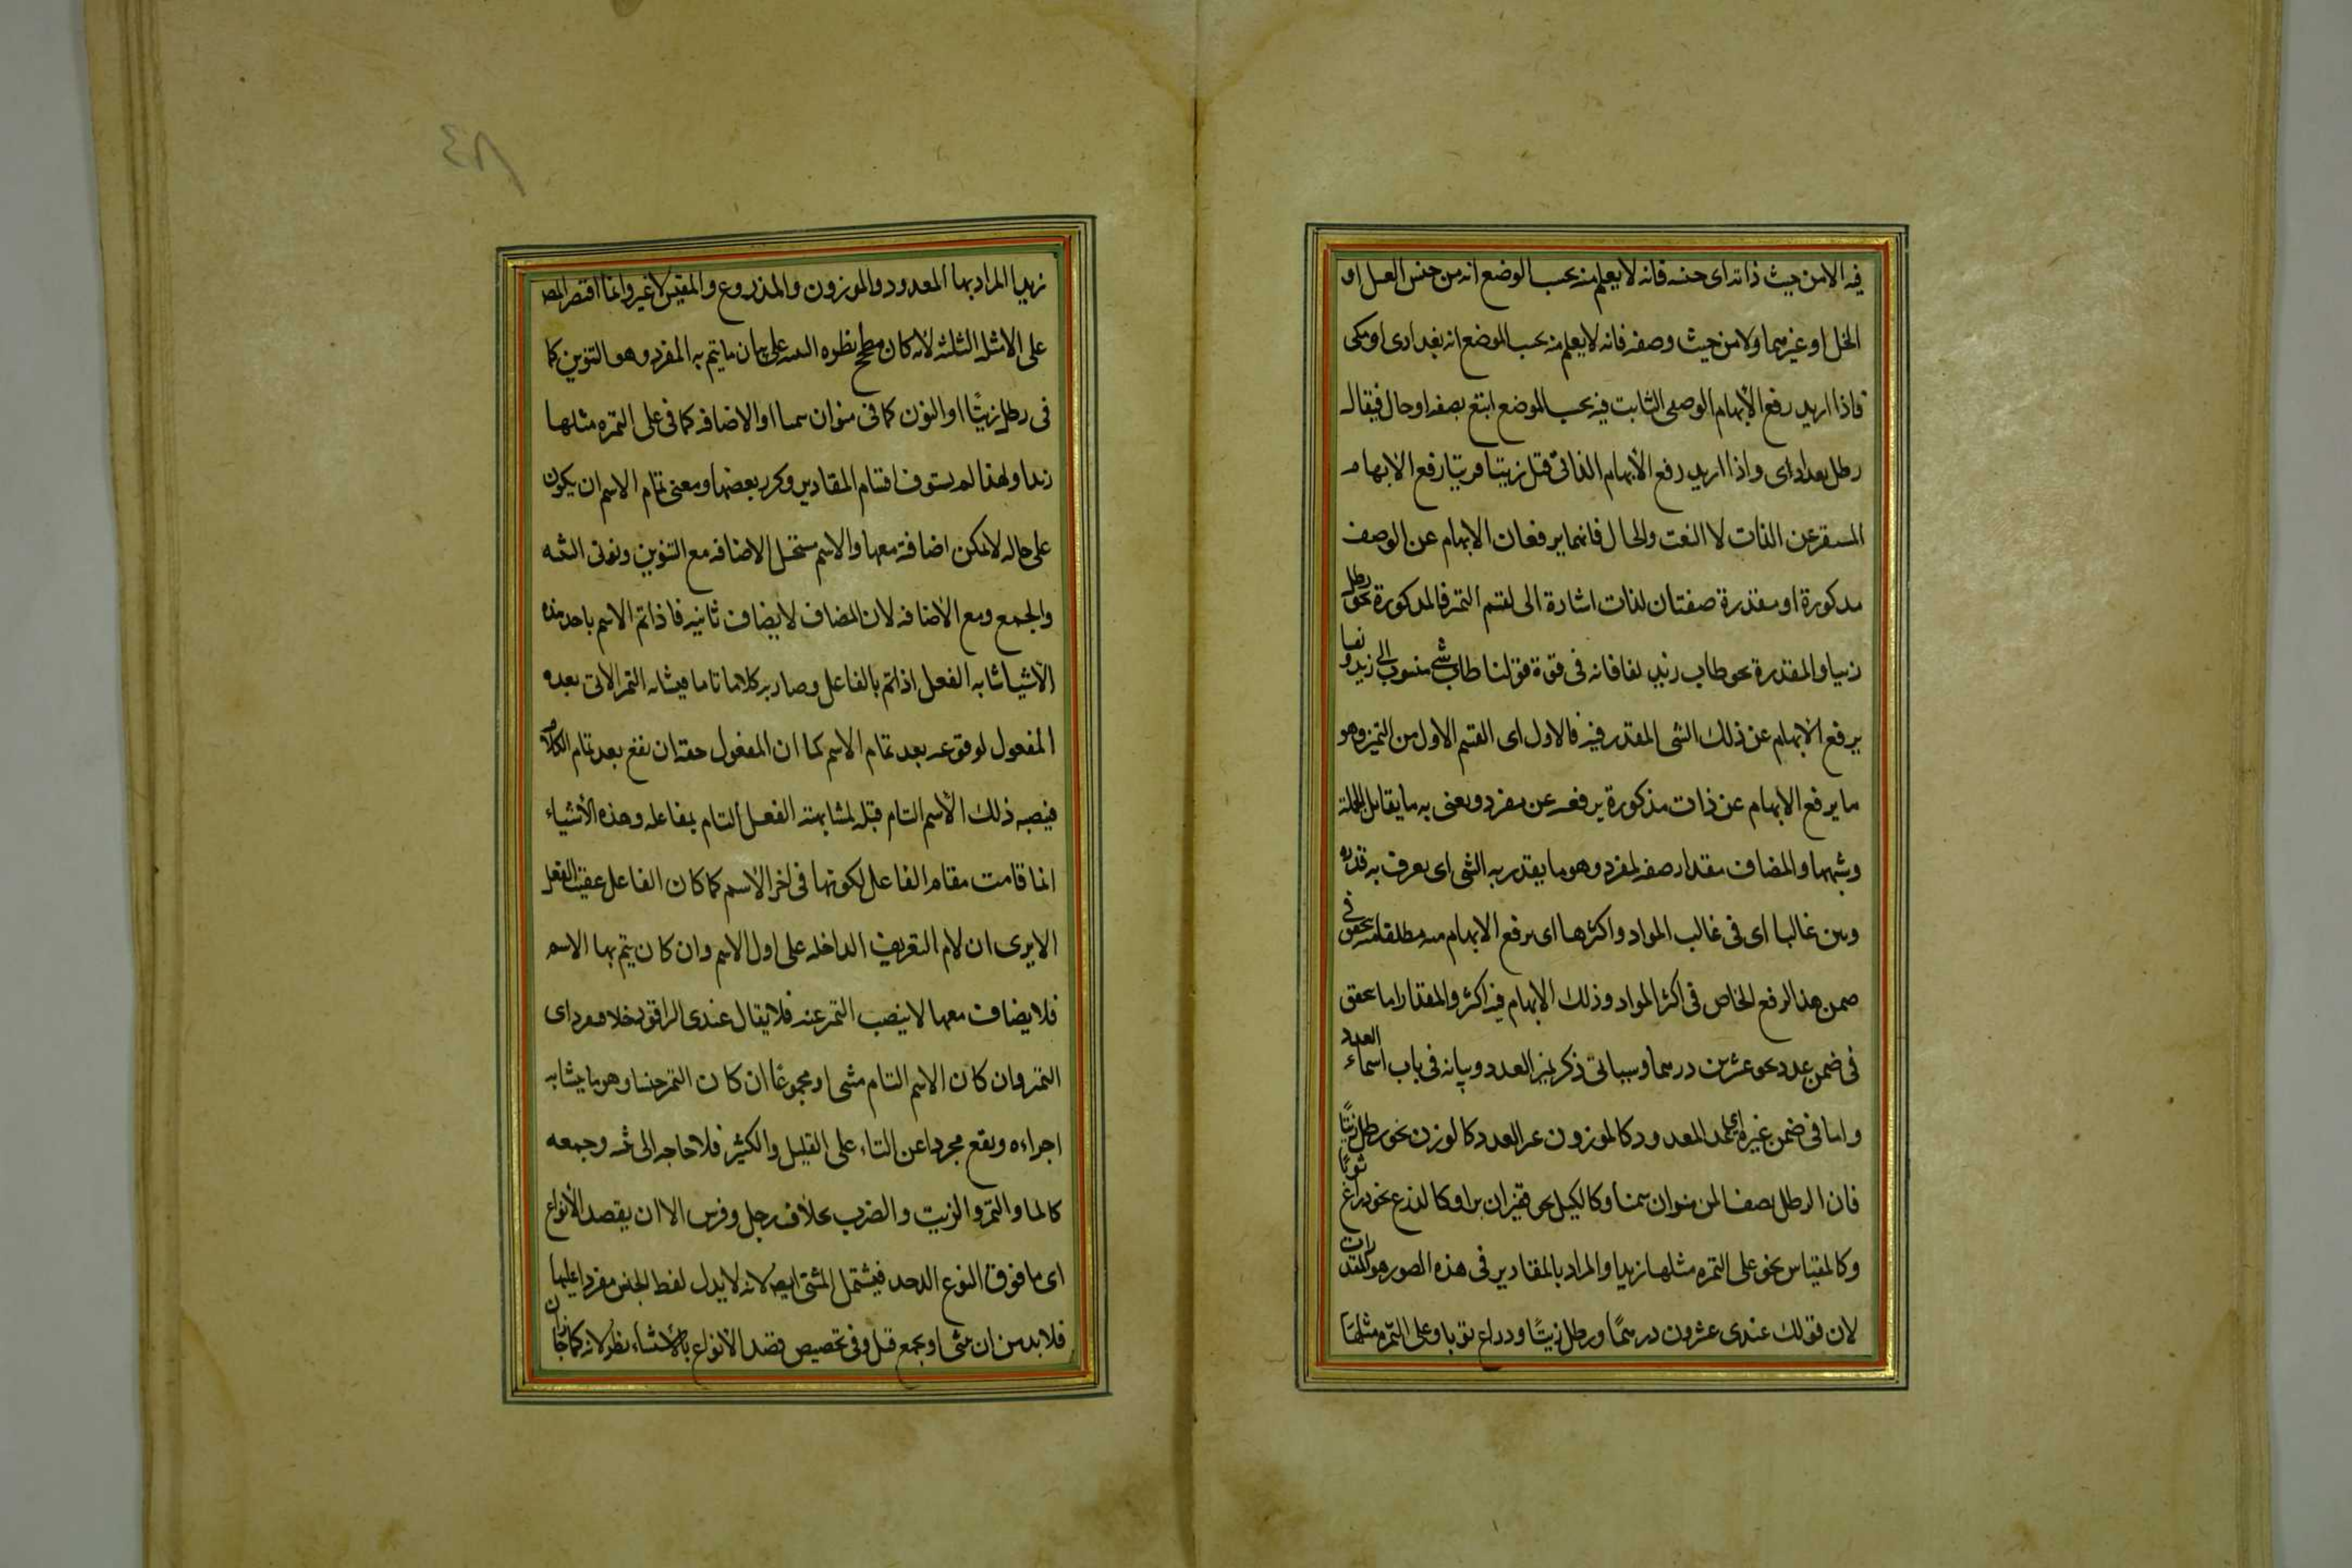 فيه الا من حيث ذاته اى جنسه فانه لا يعلم منه بحسب الوضع انه من جنس العسل او
الخل او غيرهما ولا من حيث وصفه فانه لا يعلم منه بحسب الموضع انه بغدادى او مكى
فاذا اريد رفع الابهام الوصفى الثابت فيه بحسب الموضع اتبع بصفه او حال فيقال
رطل بغدادى واذا اريد رفع الابهام الذاتى قيل زيتا رفع الابهام
المستقر عن الذات لا النعت والحال فانهما يرفعان الابهام عن الوصف
مذكورة او مقدرة صفتان لذات اشارة الى تقسيم التمييز فالمذكورة نحو رطل
زيتا والمقدرة نحو طاب زيد نفسا فانه فى قوة قولنا طاب شئ منسوب الى زيد ونفسا
يرفع الابهام عن ذلك الشى المقدر فيه فالاول اى القسم الاول من التميز وهو
ما يرفع الابهام عن ذات مذكورة يرفعه عن مفرد ويعنى به ما يقابل الجملة
وشبهها والمضاف مقدار صفه لمفرد وهو ما يقدر به الشى اى يعرف به قدره
وبين غالبا اى فى غالب المواد واكثرها اى يرفع الابهام منه مطلقا يتحقق فى
ضمن هذا الرفع الخاص فى اكثر المواد وذلك الابهام فيه اكثر والمقدار اما يتحقق
فى ضمن عدد نحو عشرين درهما وسياتى ذكر تميز العدد وبيانه فى باب اسماء العدد
واما فى ضمن غيره اى المعدود كالموزون غير العدد كالوزن نحو رطل زيتًا
فان الرطل نصف المن منوان سمنا وكالكيل نحو قفيزان برا وكالذرع نحو ذراع ثوبًا
وكالمقياس نحو على التمره مثلها زبدا والمراد بالمقادير فى هذه الصور هو المقدرات
لان قولك عندى عشرون درهمًا ورطل زيتًا وذراع ثوبا وعلى التمره مثلها
زبدا المراد بها المعدود والموزون والمذروع والمقيس لا غير وانما اقتصر المص
على الامثله الثلثه لانه كان مطمح نظره على بيان ما يتم به المفرد وهو التنوين كما
فى رطل زيتًا او النون كما فى منوان سمنا او الاضافه كما فى على التمره مثلها
زبدا ولهذا لم يستوف اقسام المقادير وكرر بعضها ومعنى تمام الاسم ان يكون
على حاله لا يمكن اضافته معها والاسم مستحيل الاضافه مع التنوين ونونى التثنيه
والجمع ومع الاضافه لان المضاف لا يضاف ثانيه فاذا تم الاسم باحد هذه
الاشيا شابه الفعل اذا تم بالفاعل وصار به كلاما تاما فيشابه التميز الاتى بعده
المفعول لوقوعه بعد تمام الاسم كما ان المفعول حقه ان يقع بعد تمام الكلام
فينصبه ذلك الاسم التام قبله لمشابهته الفعل التام بفاعله وهذه الاشياء
انما قامت مقام الفاعل لكونها فى اخر الاسم كما كان الفاعل عقيب الفعل
الا يرى ان لام التعريف الداخله على اول الاسم وان كان يتم بها الاسم
فلا يضاف معها لا ينصب التميز عنه فلا يقال عندى الراقود خلا فيفرد اى
التميز وان كان الاسم التام مثنى او مجموعا ان كان التميز جنسا وهو ما يشابه
اجزاءه ويقع مجردا عن التاء على القليل والكثير فلا حاجه الى تثنيه وجمعه
كالماء والتمر والزيت والضرب بخلاف رجل وفرس الا ان يقصد الانواع
اى ما فوق النوع الواحد فيشتمل المثنى ايضا لانه لا يدل لفظ الجنس مفردا عليها
فلا بد من ان يثنى او يجمع قيل وفى تخصيص قصد الانواع بالاستثناء نظر لانه كما جاز ان